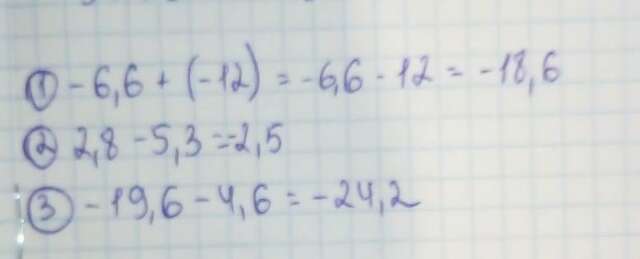 ① -6,6 + (-12) = -6,6 - 12 = -18,6
② 2,8 - 5,3 = -2,5
③ -19,6 - 4,6 = -24,2